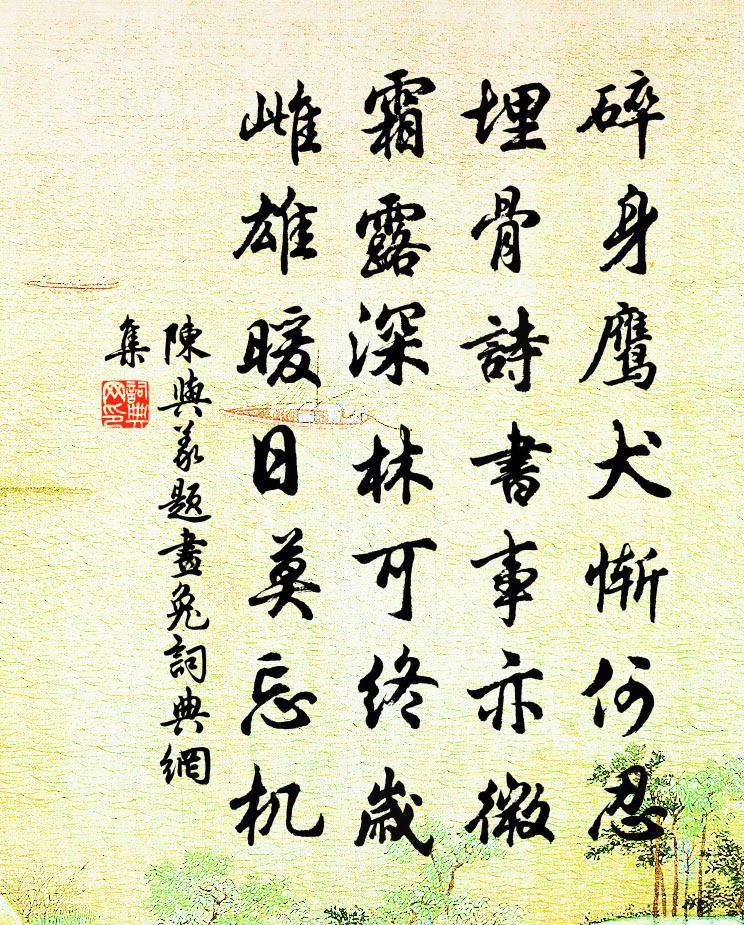 碎身鷹犬惭何忍
埋骨詩書事亦微
霜露深林可終歲
雌雄暖日莫忘机
陳與義題畫兔詞典網
集
詞典网印